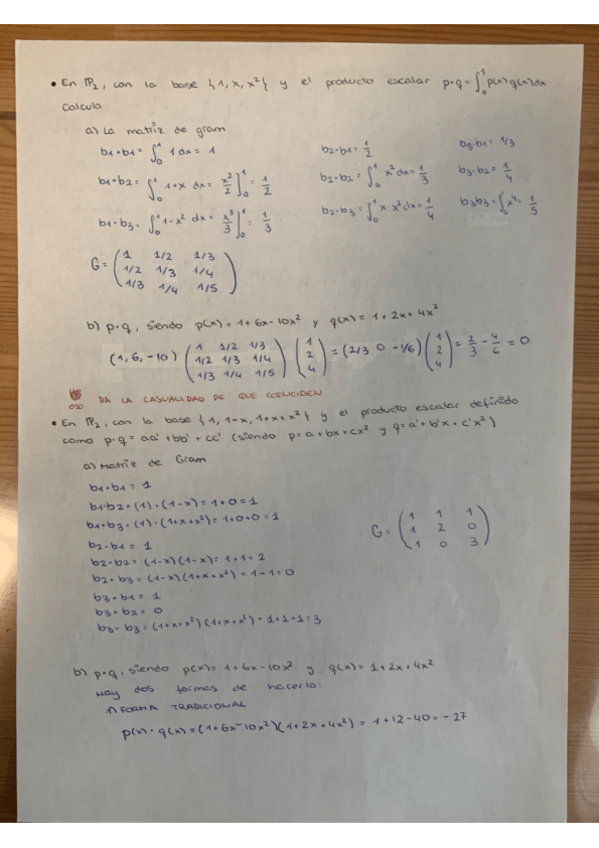 • En P₂, con la base {1, x, x²} y el producto escalar p·q = ∫₀¹ p(x)q(x)dx
Calcula
a) La matriz de gram
b1·b1 = ∫₀¹ 1 dx = 1
b1·b2 = ∫₀¹ 1·x dx = x²/2 ]₀¹ = 1/2
b1·b3 = ∫₀¹ 1·x² dx = x³/3 ]₀¹ = 1/3
b2·b1 = 1/2
b2·b2 = ∫₀¹ x² dx = 1/3
b2·b3 = ∫₀¹ x·x² dx = 1/4
b3·b1 = 1/3
b3·b2 = 1/4
b3b3 = ∫₀¹ x⁴ = 1/5
G = ( 1 1/2 1/3
1/2 1/3 1/4
1/3 1/4 1/5 )
b) p·q, siendo p(x) = 1 + 6x - 10x² y q(x) = 1 + 2x + 4x²
(1, 6, -10) ( 1 1/2 1/3 / 1/2 1/3 1/4 / 1/3 1/4 1/5 ) ( 1 / 2 / 4 ) = (2/3 0 -1/6) ( 1 / 2 / 4 ) = 2/3 - 4/6 = 0
OJO DA LA CASUALIDAD DE QUE COINCIDEN
• En P₂, con la base {1, 1-x, 1+x+x²} y el producto escalar definido
como p·q = aa' + bb' + cc' (siendo p = a + bx + cx² y q = a' + b'x + c'x²)
a) Matriz de Gram
b1·b1 = 1
b1·b2 = (1)·(1-x) = 1+0 = 1
b1·b3 = (1)·(1+x+x²) = 1+0+0 = 1
b2·b1 = 1
b2·b2 = (1-x)(1-x) = 1+1 = 2
b2·b3 = (1-x)(1+x+x²) = 1-1 = 0
b3·b1 = 1
b3·b2 = 0
b3·b3 = (1+x+x²)(1+x+x²) = 1+1+1 = 3
G = ( 1 1 1
1 2 0
1 0 3 )
b) p·q, siendo p(x) = 1 + 6x - 10x² y q(x) = 1 + 2x + 4x²
Hay dos formas de hacerlo:
1) FORMA TRADICIONAL
p(x)·q(x) = (1+6x-10x²)(1+2x+4x²) = 1+12-40 = -27